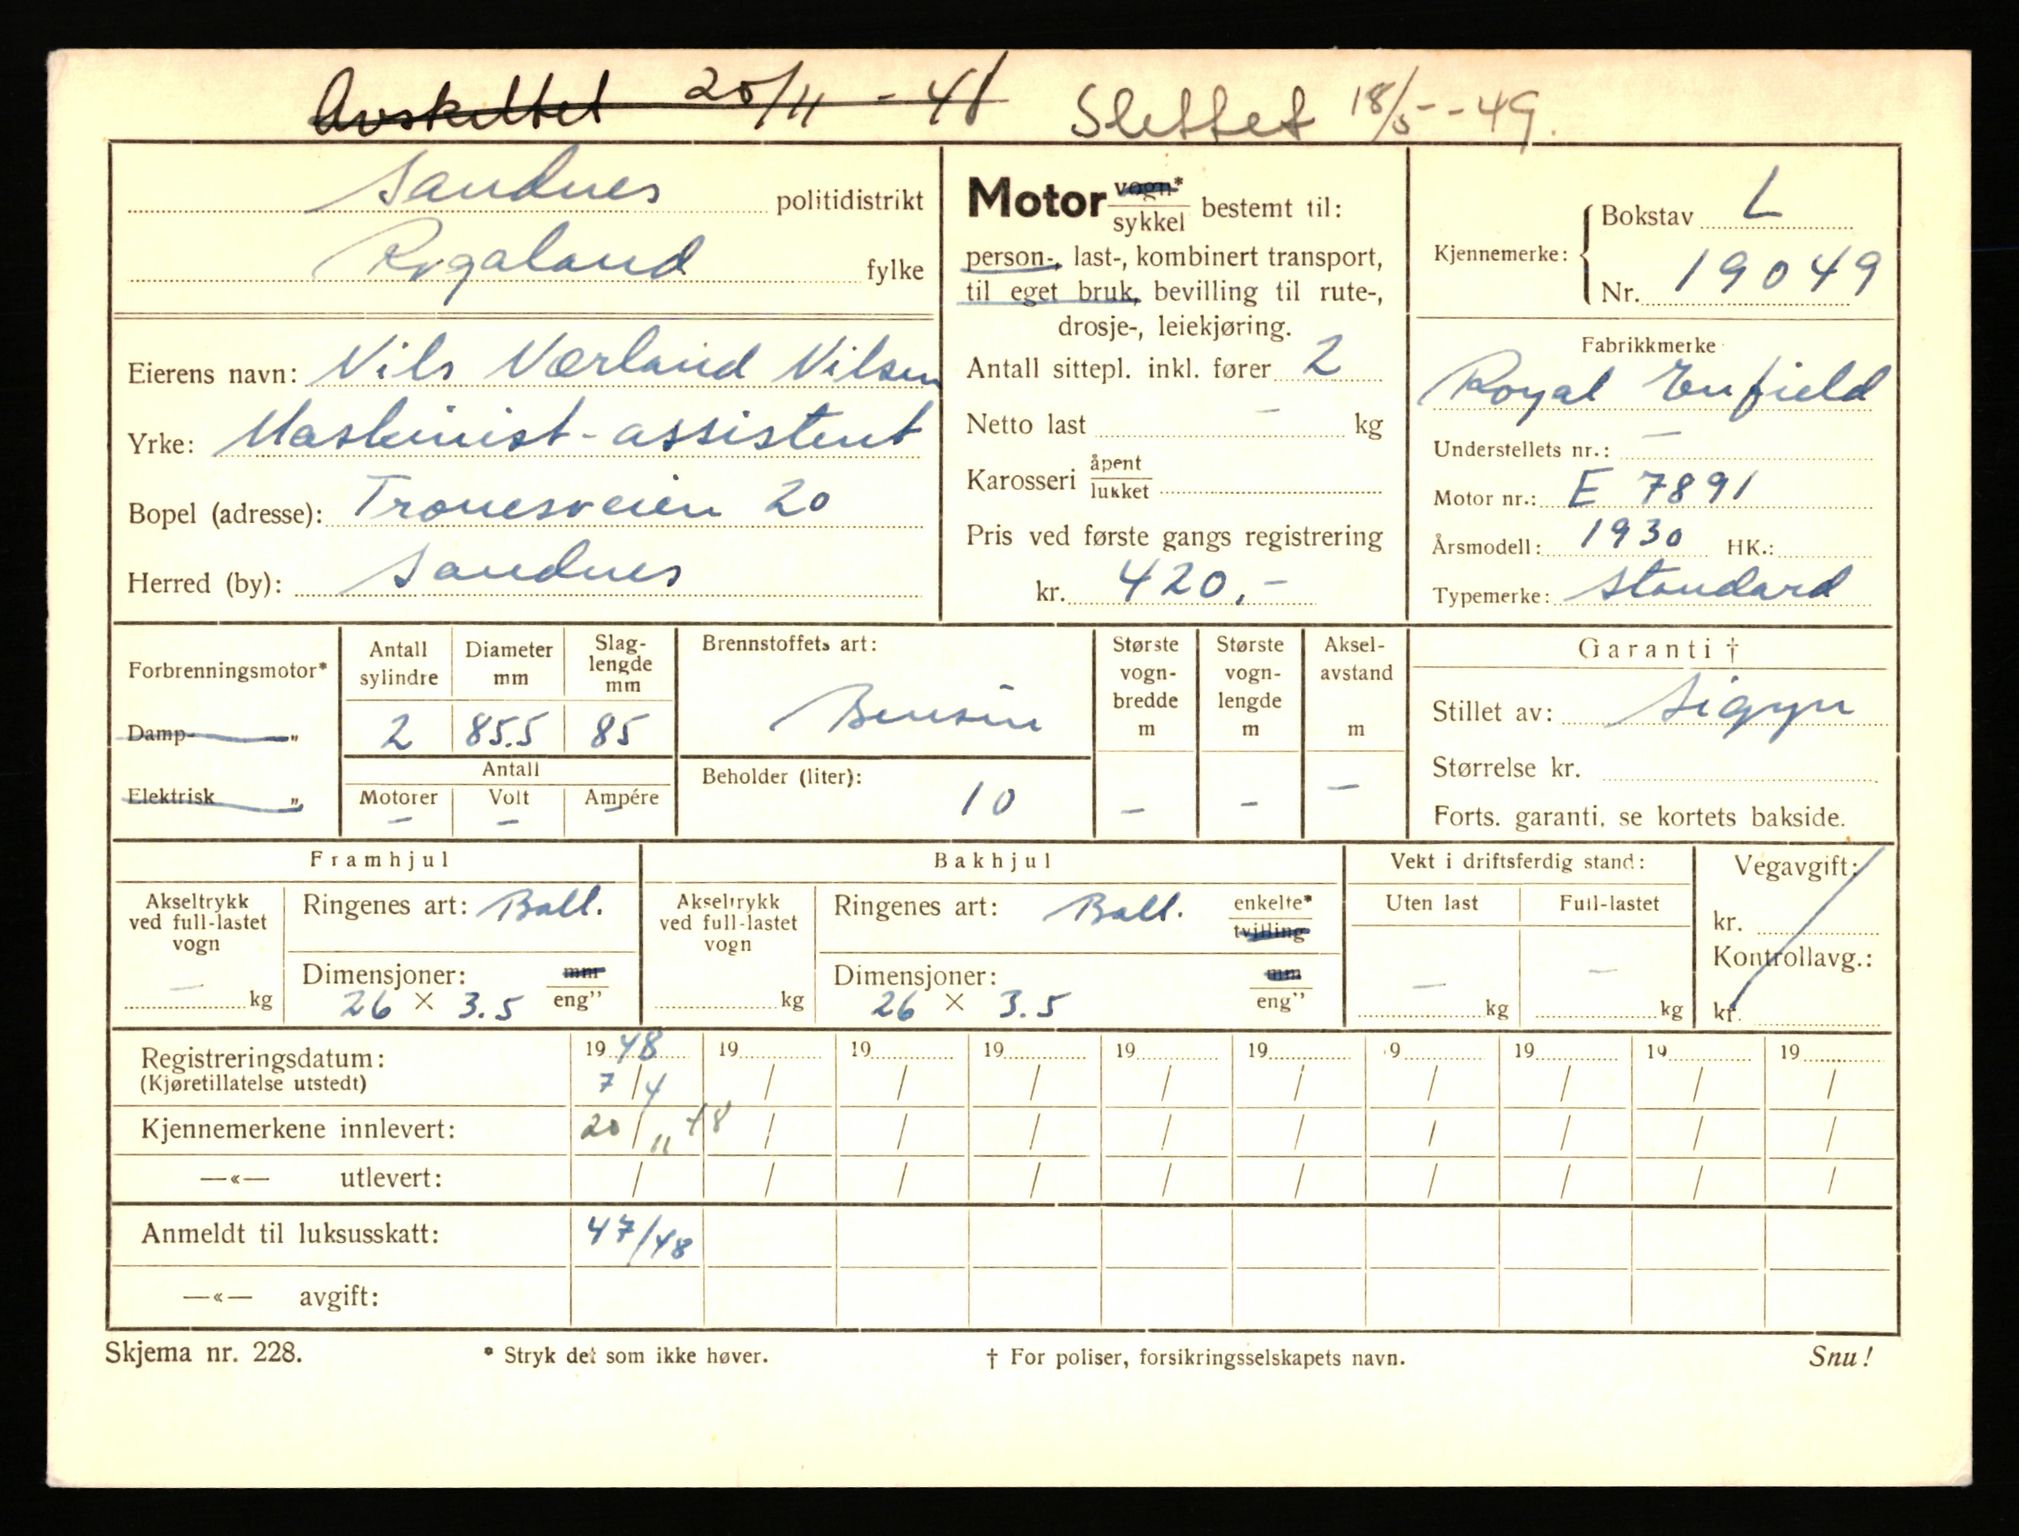 Avskiltet 20/11 - 48 Slettet 18/5 - 49.
Sandnes politidistrikt
Rogaland fylke
Eierens navn: Nils Værland Nilsen
Yrke: Maskinist-assistent
Bopel (adresse): Tronesveien 20
Herred (by): Sandnes
Motor vogn* sykkel bestemt til:
person-, last-, kombinert transport,
til eget bruk, bevilling til rute-,
drosje-, leiekjøring.
Antall sittepl. inkl. fører 2
Netto last - kg
Karosseri åpent lukket
Pris ved første gangs registrering
kr. 420,-
Kjennemerke: Bokstav L
Nr. 19049
Fabrikkmerke
Royal Enfield
Understellets nr.: -
Motor nr.: E 7891
Årsmodell: 1930 HK.:
Typemerke: Standard
Forbrenningsmotor*
Damp- „
Elektrisk „
Antall sylindre
Diameter mm
Slag-lengde mm
2 85.5 85
Antall
Motorer Volt Ampére
- - -
Brennstoffets art:
Bensin
Beholder (liter):
10
Største vogn-bredde m
-
Største vogn-lengde m
-
Aksel-avstand m
-
Garanti †
Stillet av: Sigyn
Størrelse kr.
Forts. garanti, se kortets bakside.
Framhjul
Akseltrykk ved full-lastet vogn
- kg
Ringenes art: Ball.
Dimensjoner: mm
26 × 3.5 eng”
Bakhjul
Akseltrykk ved full-lastet vogn
kg
Ringenes art: Ball. enkelte* tvilling
Dimensjoner: mm
26 × 3.5 eng”
Vekt i driftsferdig stand:
Uten last Full-lastet
- kg - kg
Vegavgift:
kr.
Kontrollavg.:
kr.
Registreringsdatum: 19 48 19 19 19 19 19 19 19 19 19
(Kjøretillatelse utstedt) 7/4 / / / / / / / / /
Kjennemerkene innlevert: 20/11 48 / / / / / / / / /
—«— utlevert: / / / / / / / / / /
Anmeldt til luksusskatt: 47/48
—«— avgift:
Skjema nr. 228. * Stryk det som ikke høver. † For poliser, forsikringsselskapets navn. Snu!